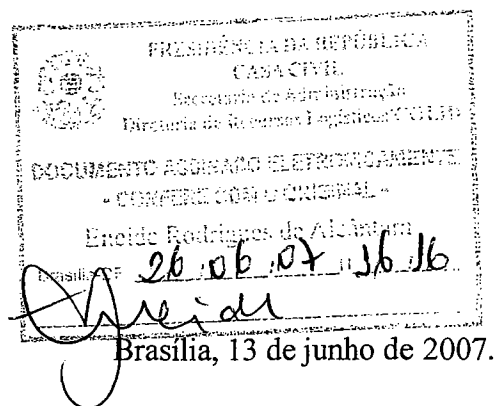 PRESIDÊNCIA DA REPÚBLICA
CASA CIVIL
Secretaria de Administração
Diretoria de Recursos Logísticos/COLID
DOCUMENTO ASSINADO ELETRONICAMENTE
- CONFERE COM O ORIGINAL -
Eneide Rodrigues de Alcântara
Brasília-DF 26 06 07 16 16
Eneide
Brasília, 13 de junho de 2007.